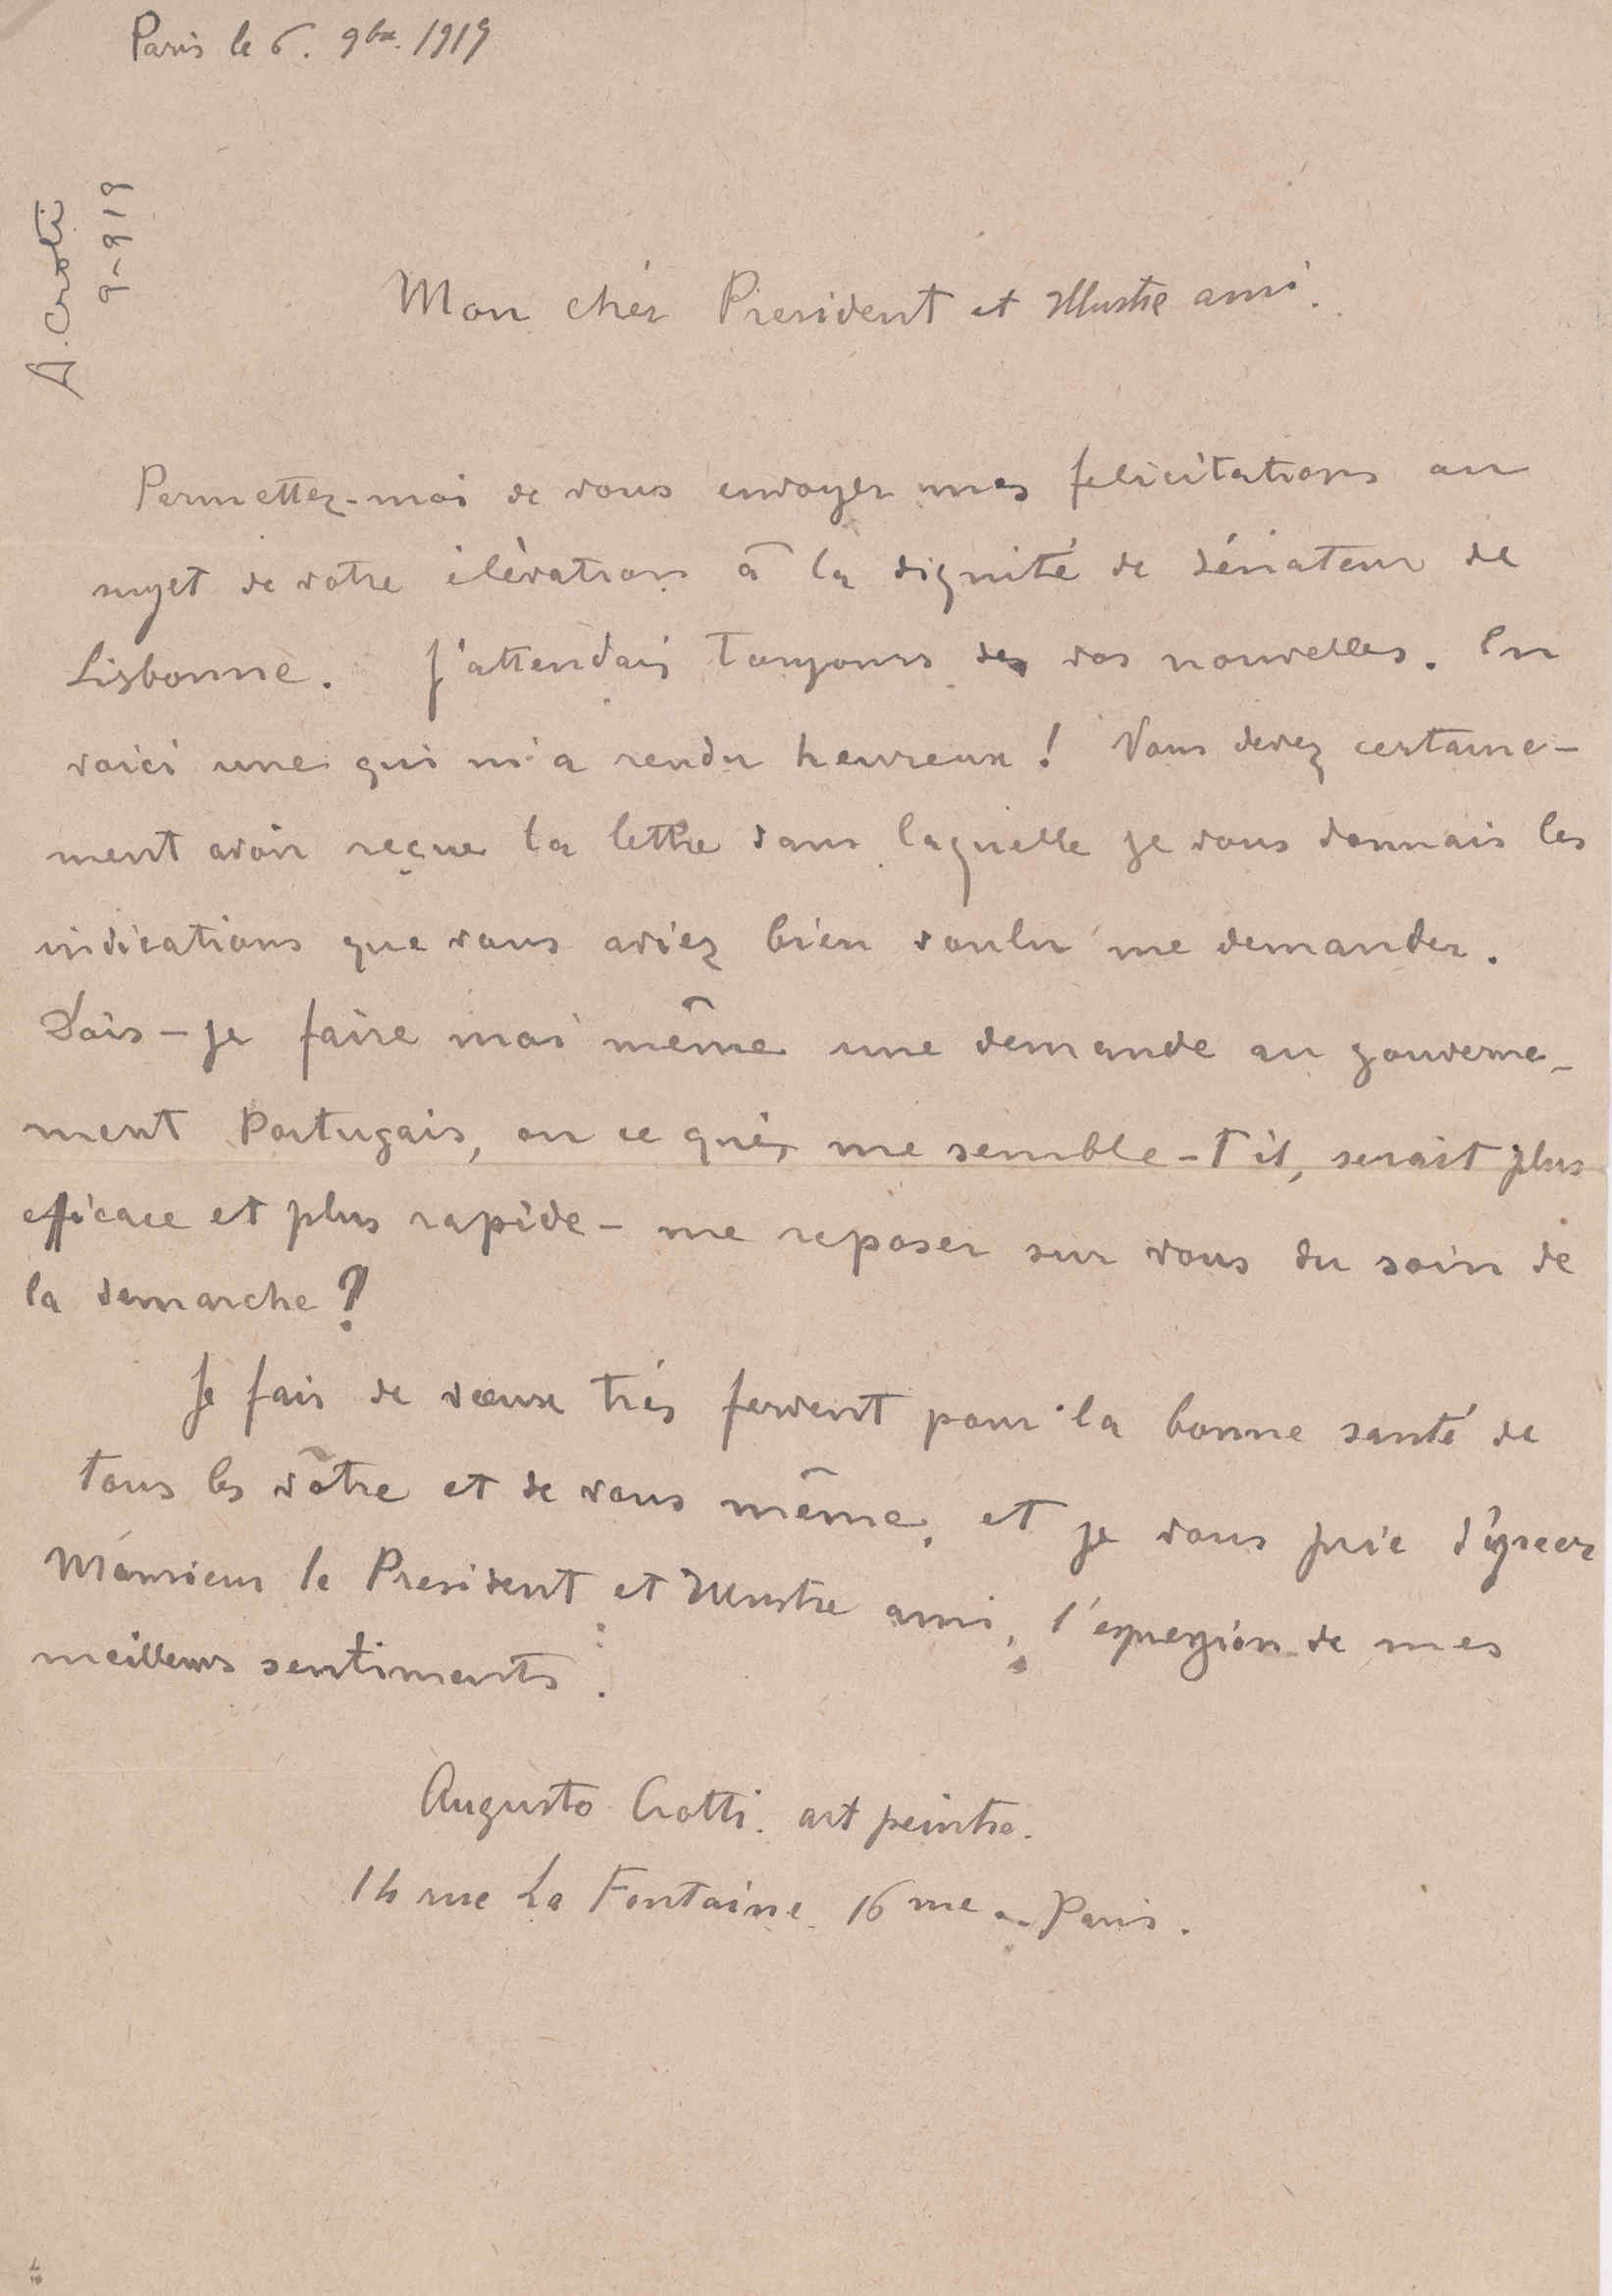 Paris le 6. 9bre. 1919
A. Crotti
9-919
Mon chér President et Illustre ami.
Permettez-moi de vous envoyer mes felicitations au
sujet de votre élèvation à la dignité de sénateur de
Lisbonne. J'attendais toujours des vos nouvelles. En
voici une qui m'a rendu heureux! Vous devez certaine-
ment avoir reçue la lettre dans laquelle je vous donnais les
indications que vous aviez bien voulu me demander.
Dois-je faire moi même une demande au gouverne-
ment Portugais, ou ce qui, me semble-t'il, serait plus
efficace et plus rapide - me reposer sur vous du soin de
la demarche?
Je fais de vœux trés fervent pour la bonne santé de
tous les vôtre et de vous même, et je vous prie d'gréer
Monsieur le President et Illustre ami, l'expression de mes
meilleurs sentiments.
Augusto Crotti. art peintre.
14 rue La Fontaine. 16 me - Paris.